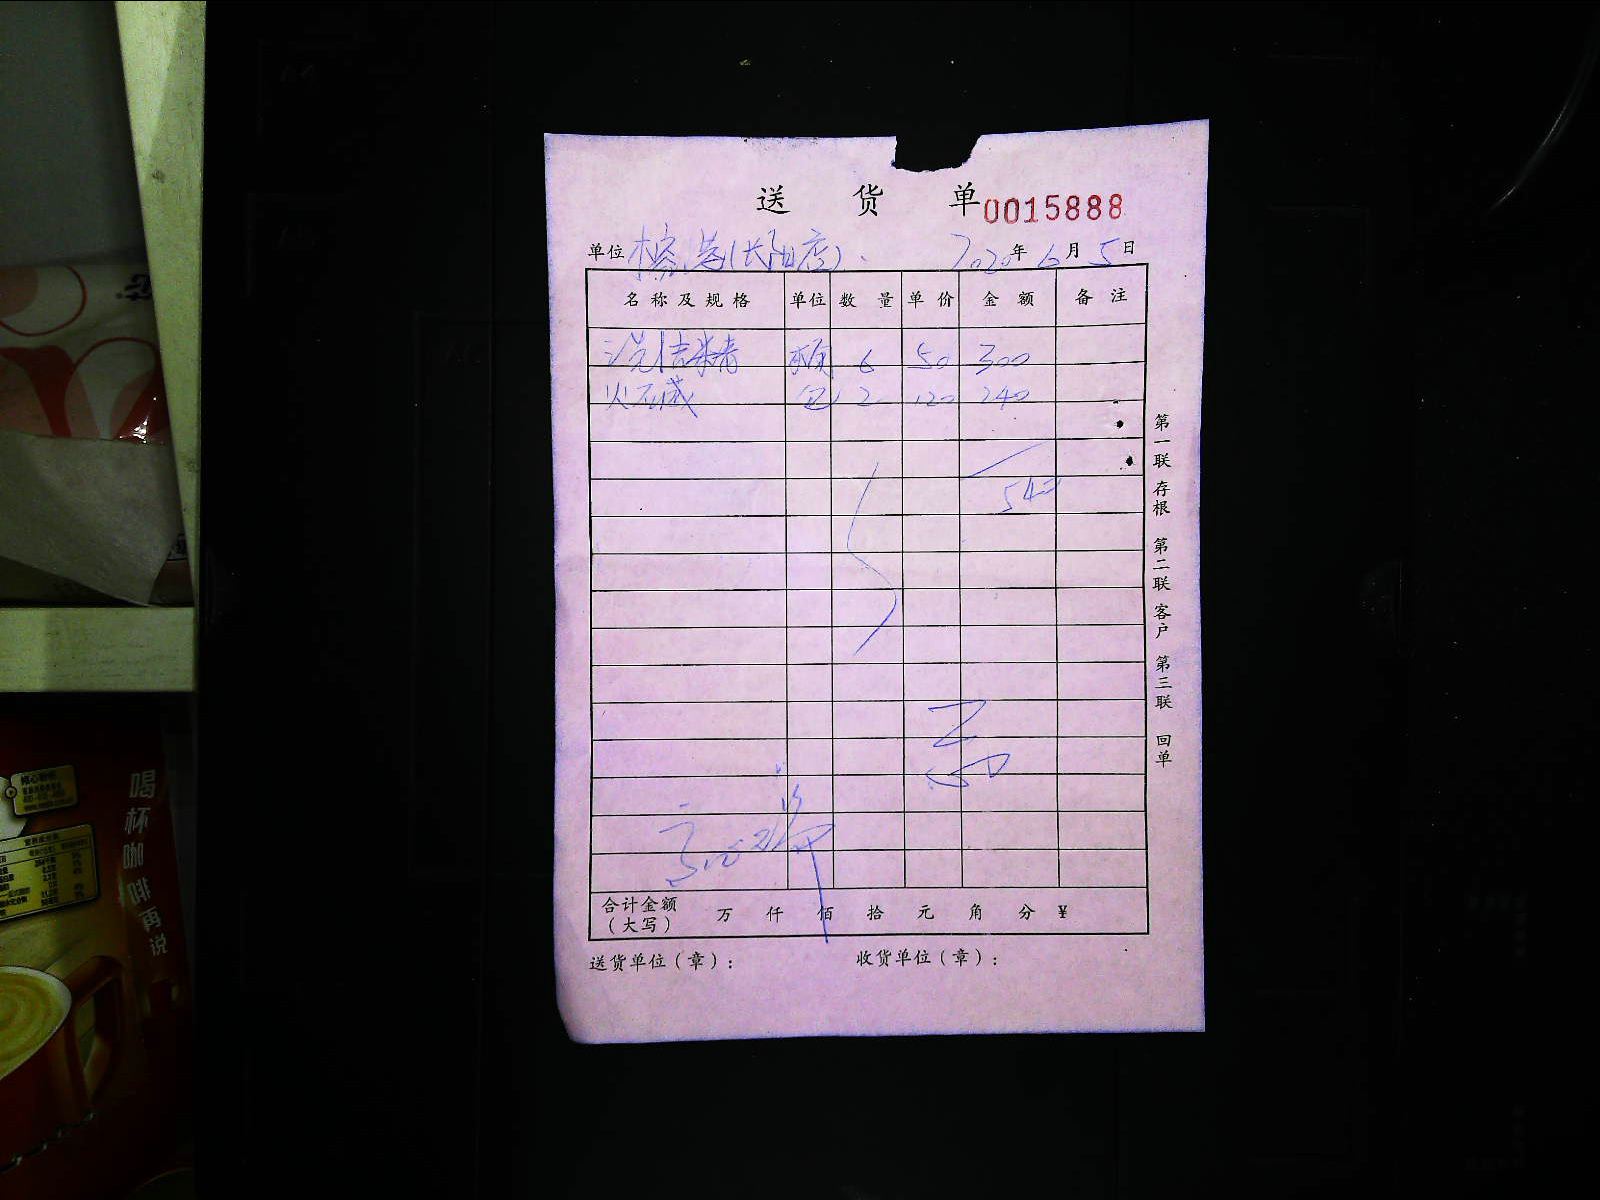 送货单 0015888
单位 榕港(长阳店) 2020年6月5日
名称及规格 单位 数量 单价 金额 备注
洗洁精 桶 6 50 300
火碱 包 2 120 240
540
合计金额（大写） 万 仟 佰 拾 元 角 分 ¥
送货单位（章）： 收货单位（章）：
第一联 存根 第二联 客户 第三联 回单
喝杯咖啡再说